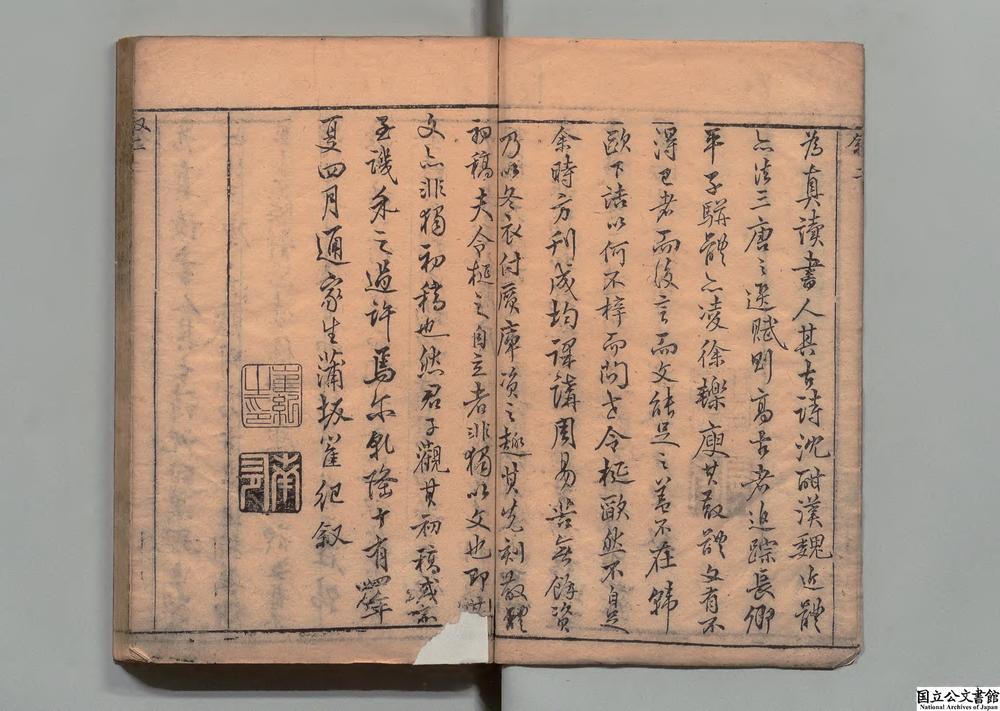 為真讀書人其古詩沈酣漢魏近體
亦法三唐之選賦則高古者追踪長卿
平子駢體亦凌徐轢庾其散體文有不
得已者而後言而文能足之若不在韓
歐下詰以何不梓而問世令樾歐然不自足
余時方刊成均課講周易苦無餘資
乃以冬衣付質庫資之趣其先刻散體
初稿夫令樾之自立者非獨以文也即其
文亦非獨初稿也然君子觀其初稿或亦
不譏余之過許焉爾乾隆十有四年
夏四月通家生蒲坂崔紀叙
崔紀
之印
南
有
叙二
国立公文書館
National Archives of Japan